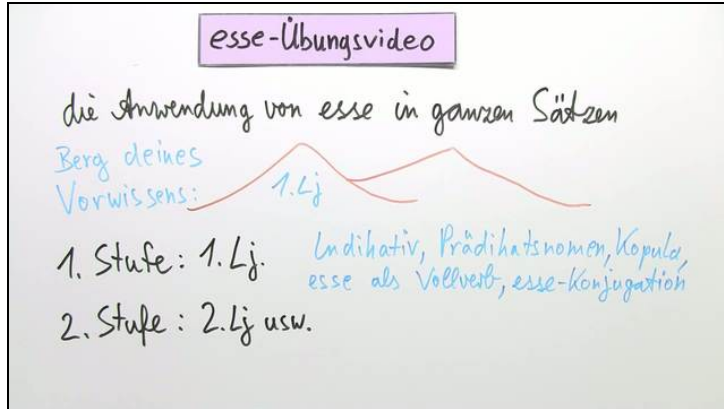 esse-Übungsvideo
die Anwendung von esse in ganzen Sätzen
Berg deines
Vorwissens:
1. Lj
1. Stufe: 1. Lj.
Indikativ, Prädikatsnomen, Kopula,
esse als Vollverb, esse-Konjugation
2. Stufe: 2. Lj usw.